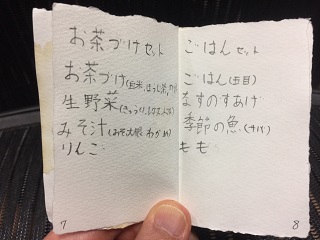 お茶づけセット
お茶づけ(玄米、ほうじ茶、
生野菜(きゅうり、
みそ汁(みそ大根 わかめ)
りんご
7
ごはんセット
ごはん(五目)
なすのすあげ
季節の魚(サバ)
もも
8